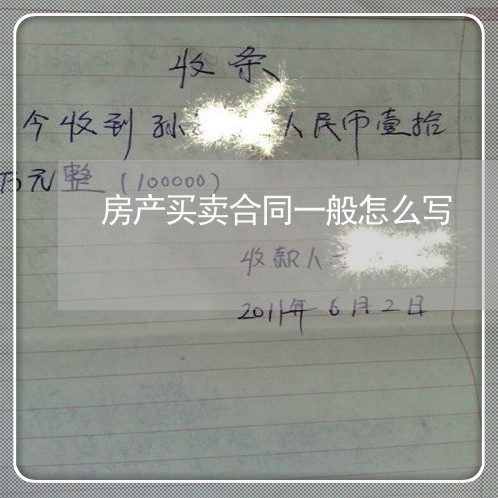 收条
今收到孙 人民币壹拾
万元整（100000）
房产买卖合同一般怎么写
收款人
2011年6月2日